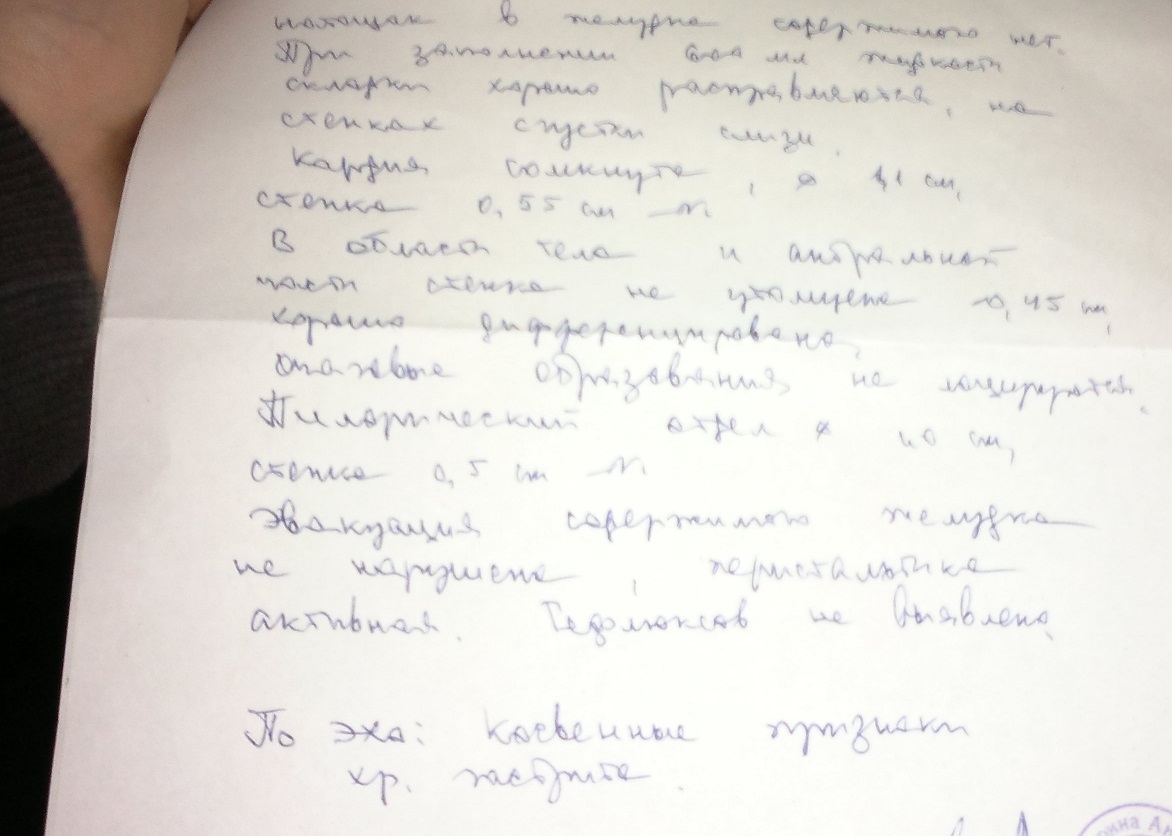 натощак в желудке содержимого нет.
При заполнении 600 мл жидкости
складки хорошо расправляются, на
стенках сгустки слизи.
Кардия сомкнута, ⌀ 1,1 см,
стенка 0,55 см – N.
В области тела и антральной
части стенка не утолщена – 0,45 см,
хорошо дифференцирована,
очаговые образования не лоцируются.
Пилорический отдел ⌀ 1,0 см,
стенка 0,5 см – N.
Эвакуация содержимого желудка
не нарушена, перистальтика
активная. Рефлюксов не выявлено.
По эхо: Косвенные признаки
хр. гастрита.